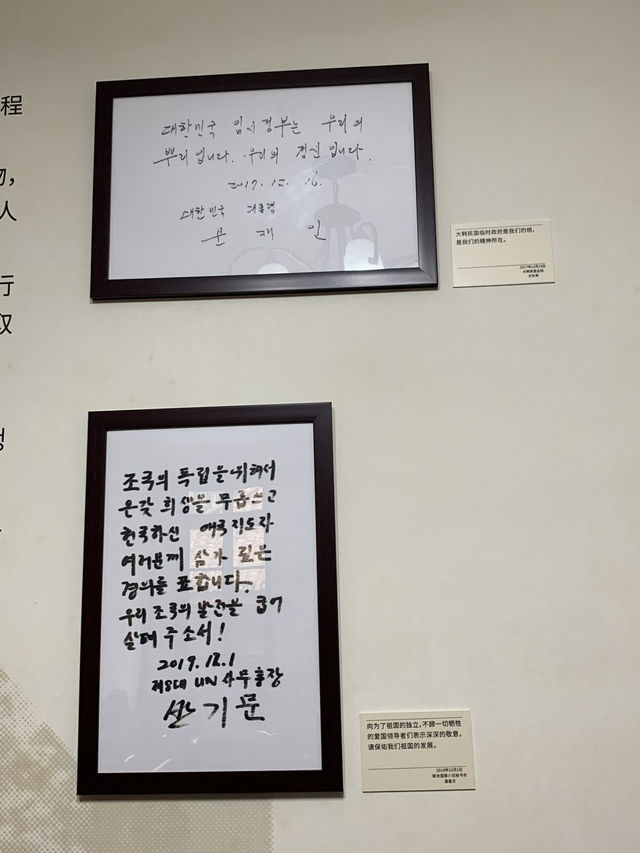 程
物,
人
行
取
대한민국 임시정부는 우리의
뿌리입니다. 우리의 정신입니다.
2017. 12. 16.
대한민국 대통령
문 재 인
大韩民国临时政府是我们的根,
是我们的精神所在。
2017年12月16日
大韩民国总统
文在寅
조국의 독립을 위해서
온갖 희생을 무릅쓰고
헌국하신 애국지도자
여러분께 삼가 깊은
경의를 표합니다.
우리 조국의 발전을 굽어
살펴 주소서!
2019. 12. 1
제8대 UN 사무총장
반기문
向为了祖国的独立,不顾一切牺牲
的爱国领导者们表示深深的敬意,
请保佑我们祖国的发展。
2019年12月1日
联合国第八任秘书长
潘基文